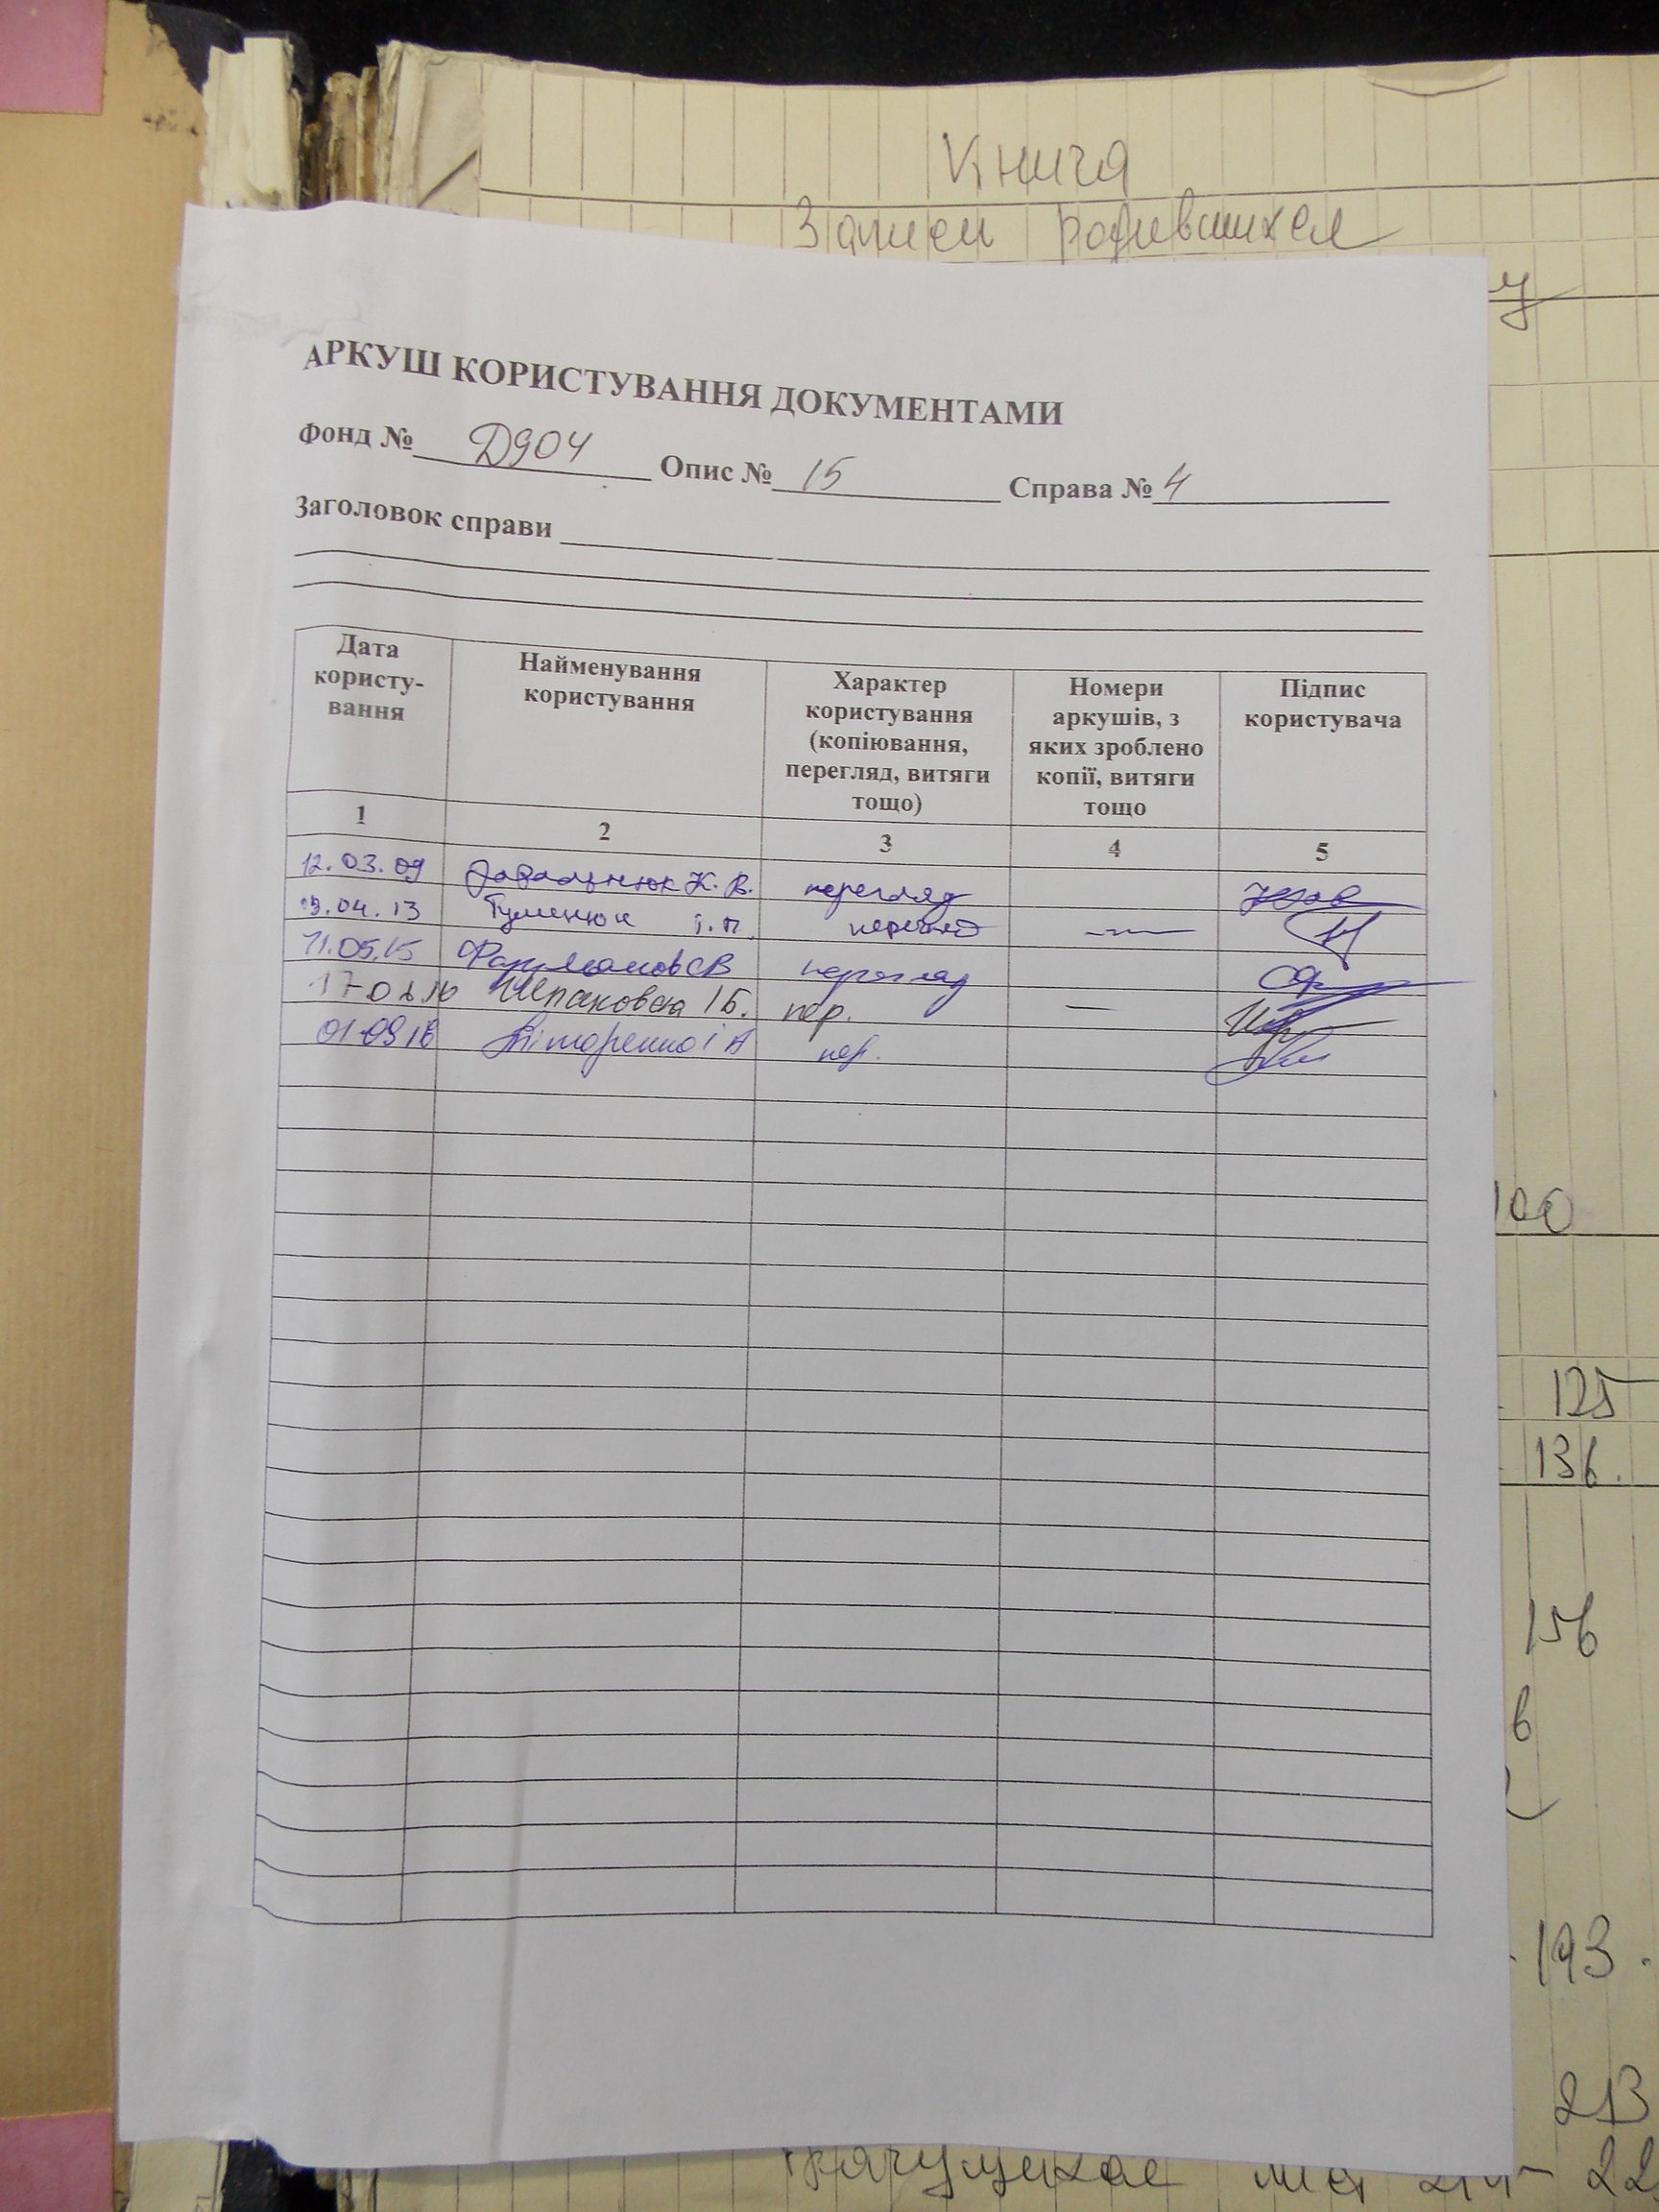 Книга
Записи родившихся
у
АРКУШ КОРИСТУВАННЯ ДОКУМЕНТАМИ
Фонд № Д904 Опис № 15 Справа № 4
Заголовок справи
Дата користу-вання
Найменування користування
Характер користування (копіювання, перегляд, витяги тощо)
Номери аркушів, з яких зроблено копії, витяги тощо
Підпис користувача
1 2 3 4 5
12.03.09 К. В. перегляд
04.13 Гуменюк І. П. перегляд —
11.05.15 СВ перегляд
17 Шпаковська І Б. пер. —
01 09 І А пер.
100
125
136.
156
в
193.
213
22